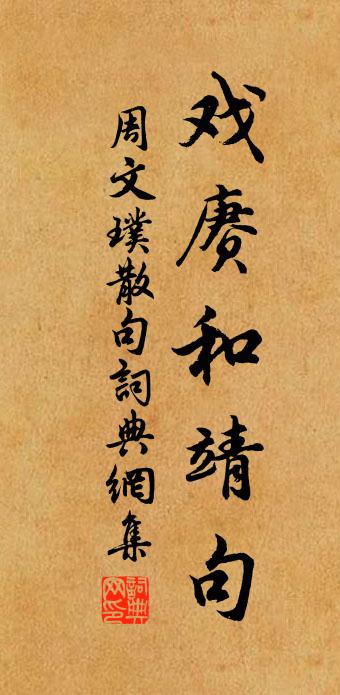 戏赓和靖句
周文璞散句詞典網集
詞典網印